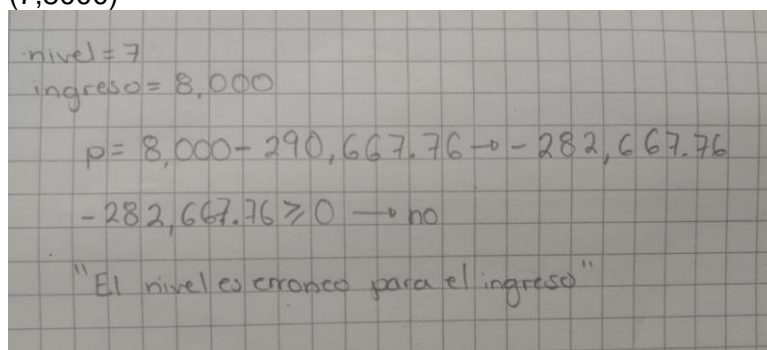 (7,8000)
nivel = 7
ingreso = 8,000
p = 8,000 - 290,667.76 → - 282,667.76
- 282,667.76 ≥ 0 → no
"El nivel es erroneo para el ingreso"